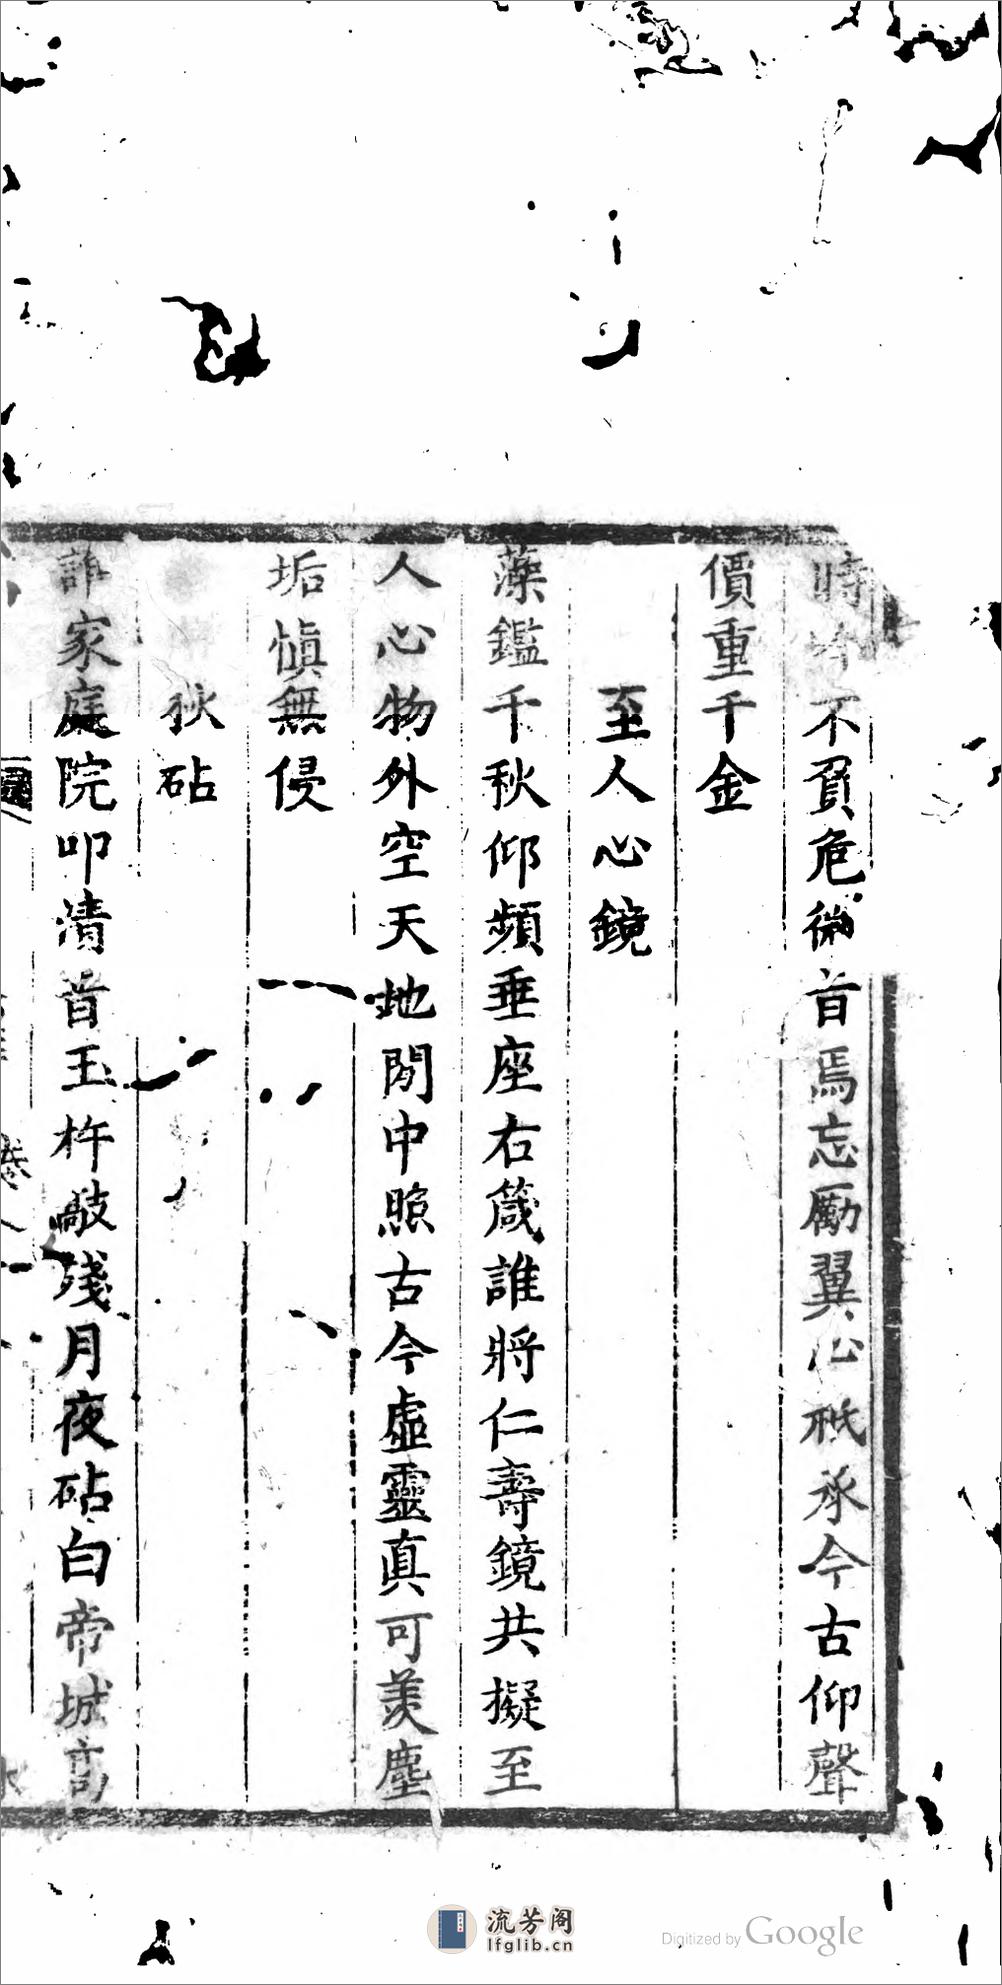 時吟不負危微首焉忘勵翼心祇承今古仰聲
價重千金
至人心鏡
藻鑑千秋仰頻垂座右箴誰將仁壽鏡共擬至
人心物外空天地閒中照古今虛靈真可羨塵
垢愼無侵
秋砧
誰家庭院叩清首玉杵敲殘月夜砧白帝城高
流芳阁
lfglib.cn
Digitized by Google